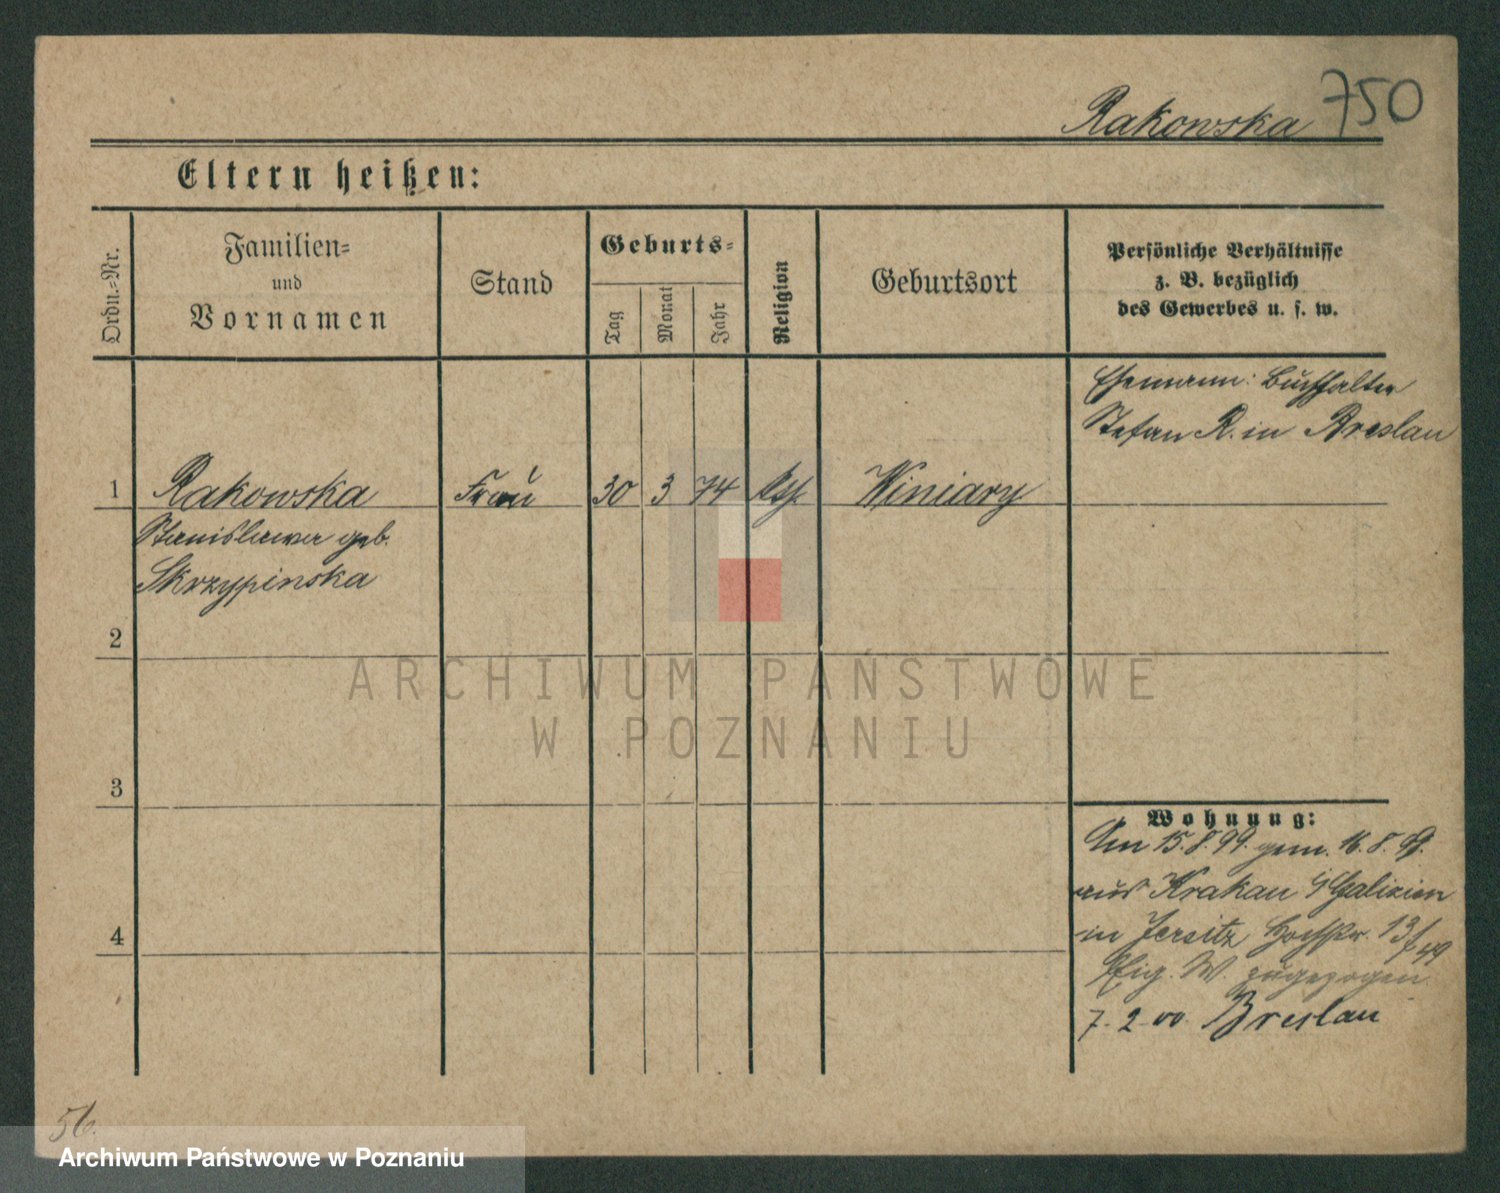 Rakowska 750
Eltern heißen:
Ordn.-Nr.
Familien-
und
Vornamen
Stand
Geburts-
Tag
Monat
Jahr
Religion
Geburtsort
Persönliche Verhältnisse
z. B. bezüglich
des Gewerbes u. s. w.
Ehemann: Buchhalter
Stefan R. in Breslau
1 Rakowska Frau 30 3 74 Kth. Winiary
Stanislawa geb.
Skrzypinska
2
ARCHIWUM PAŃSTWOWE
W POZNANIU
3
Wohnung:
Am 15.8.99. gem. 16.8.99.
aus Krakau Galizien
in Jersitz Hochstr. 13
Eig. W. zugezogen
4
7. 2. 00. Breslau
56.
Archiwum Państwowe w Poznaniu